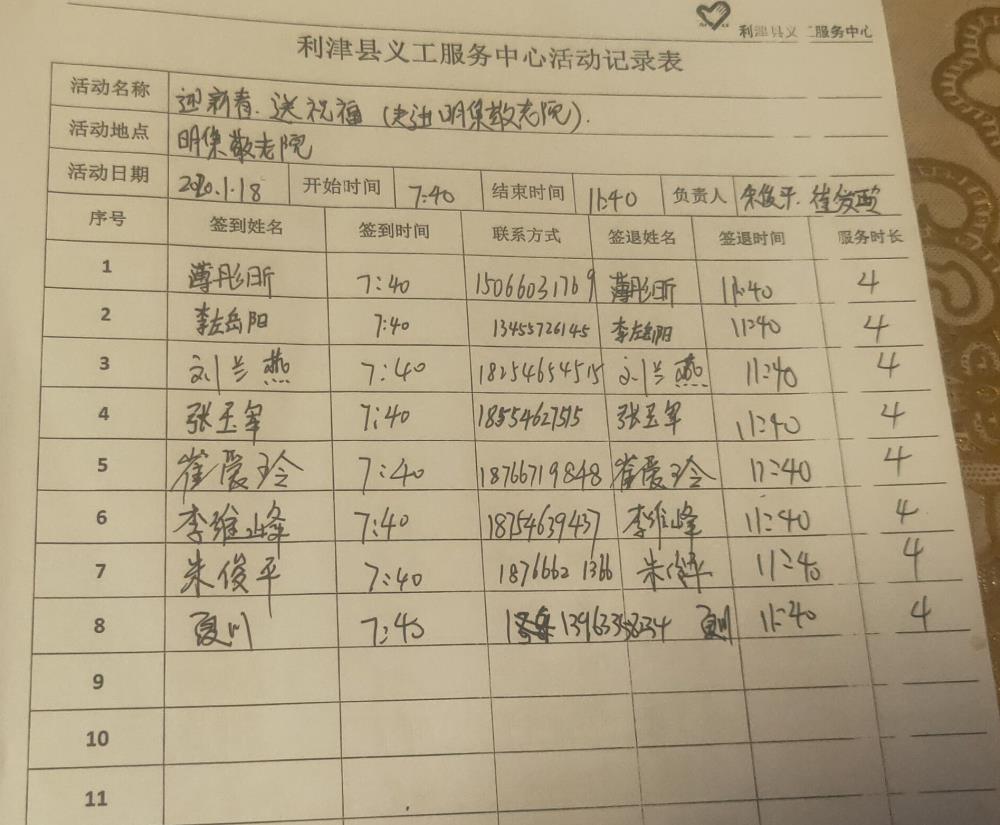 利津县义工服务中心
利津县义工服务中心活动记录表
活动名称 迎新春.送祝福(走进明集敬老院).
活动地点 明集敬老院
活动日期 2020.1.18 开始时间 7:40 结束时间 11:40 负责人 朱俊平.
序号 签到姓名 签到时间 联系方式 签退姓名 签退时间 服务时长
1 薄彤昕 7:40 15066031769 薄彤昕 11:40 4
2 李岳阳 7:40 13455726145 李岳阳 11:40 4
3 刘兰燕 7:40 18254654515 刘兰燕 11:40 4
4 张玉军 7:40 18554627515 张玉军 11:40 4
5 崔爱玲 7:40 18766719848 崔爱玲 11:40 4
6 李维峰 7:40 18754639437 李维峰 11:40 4
7 朱俊平 7:40 18766621366 朱俊平 11:40 4
8 夏川 7:40 夏川 11:40 4
9
10
11